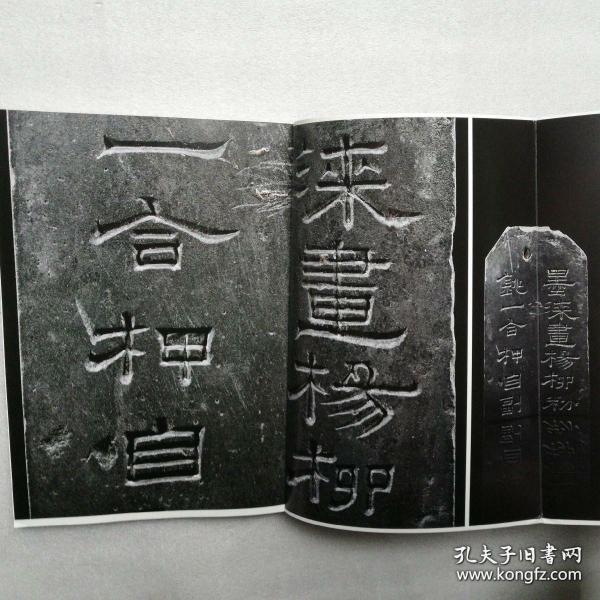 墨淶畫楊柳粉
一合柙自副
淶畫楊柳
一合柙自
孔夫子旧书网
www.kongfz.com